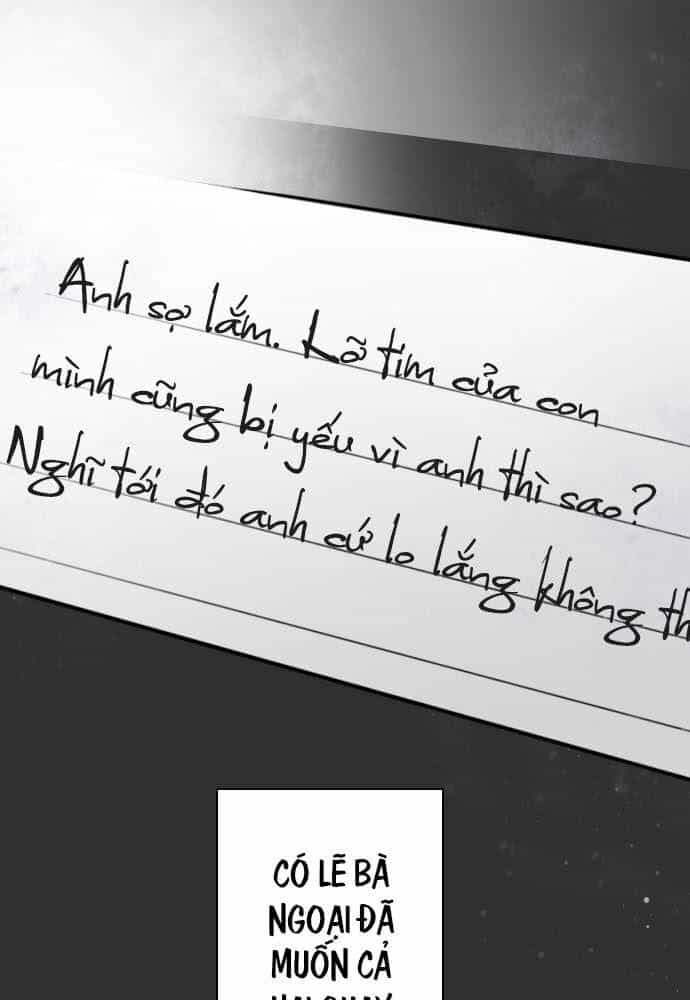 Anh sợ lắm. Lỡ tim của con
mình cũng bị yếu vì anh thì sao?
Nghĩ tới đó anh cứ lo lắng không
CÓ LẼ BÀ
NGOẠI ĐÃ
MUỐN CẢ